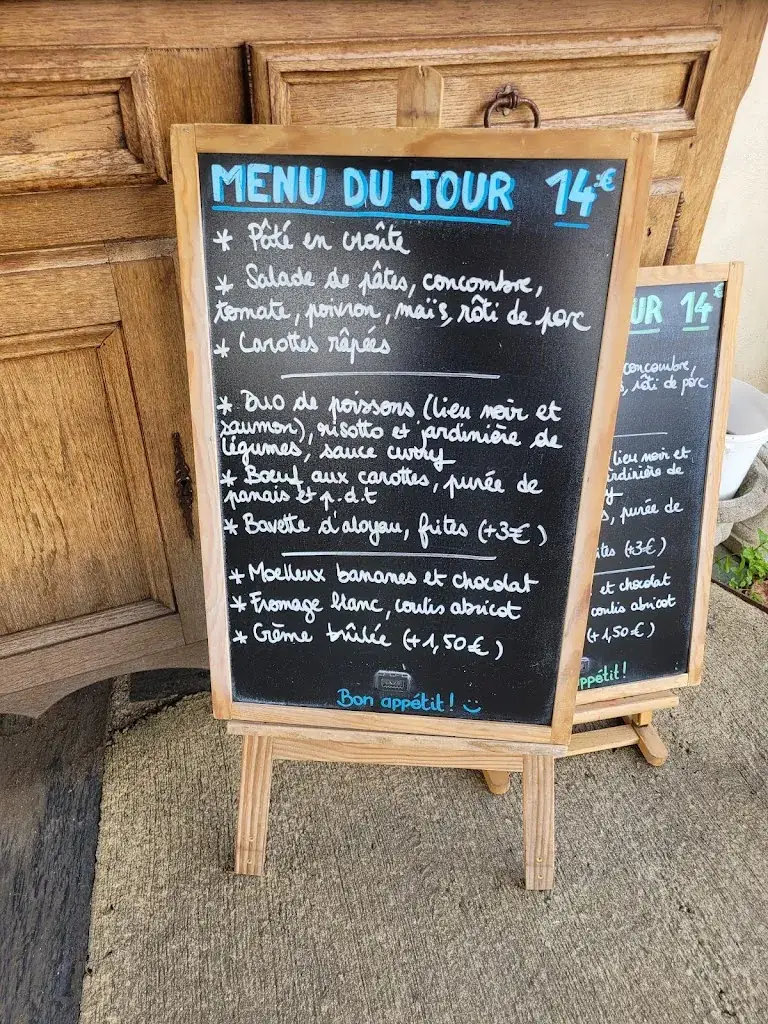 MENU DU JOUR 14€
* Pâté en croûte
* Salade de pâtes, concombre,
tomate, poivron, maïs, rôti de porc
* Carottes râpées
* Duo de poissons (lieu noir et
saumon), risotto et jardinière de
légumes, sauce curry
* Bœuf aux carottes, purée de
panais et p.d.t
* Bavette d'aloyau, frites (+3€)
* Moelleux bananes et chocolat
* Fromage blanc, coulis abricot
* Crème brûlée (+1,50€)
Bon appétit!
UR 14€
concombre,
s, rôti de porc
lieu noir et
ardinière de
y
s, purée de
ites (+3€)
et chocolat
coulis abricot
(+1,50€)
ppétit!